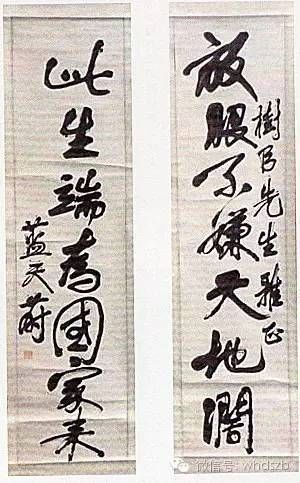 放眼不嫌天地濶
樹臣先生雅正
此生端為國家来
藍天蔚
微信号: whdszb